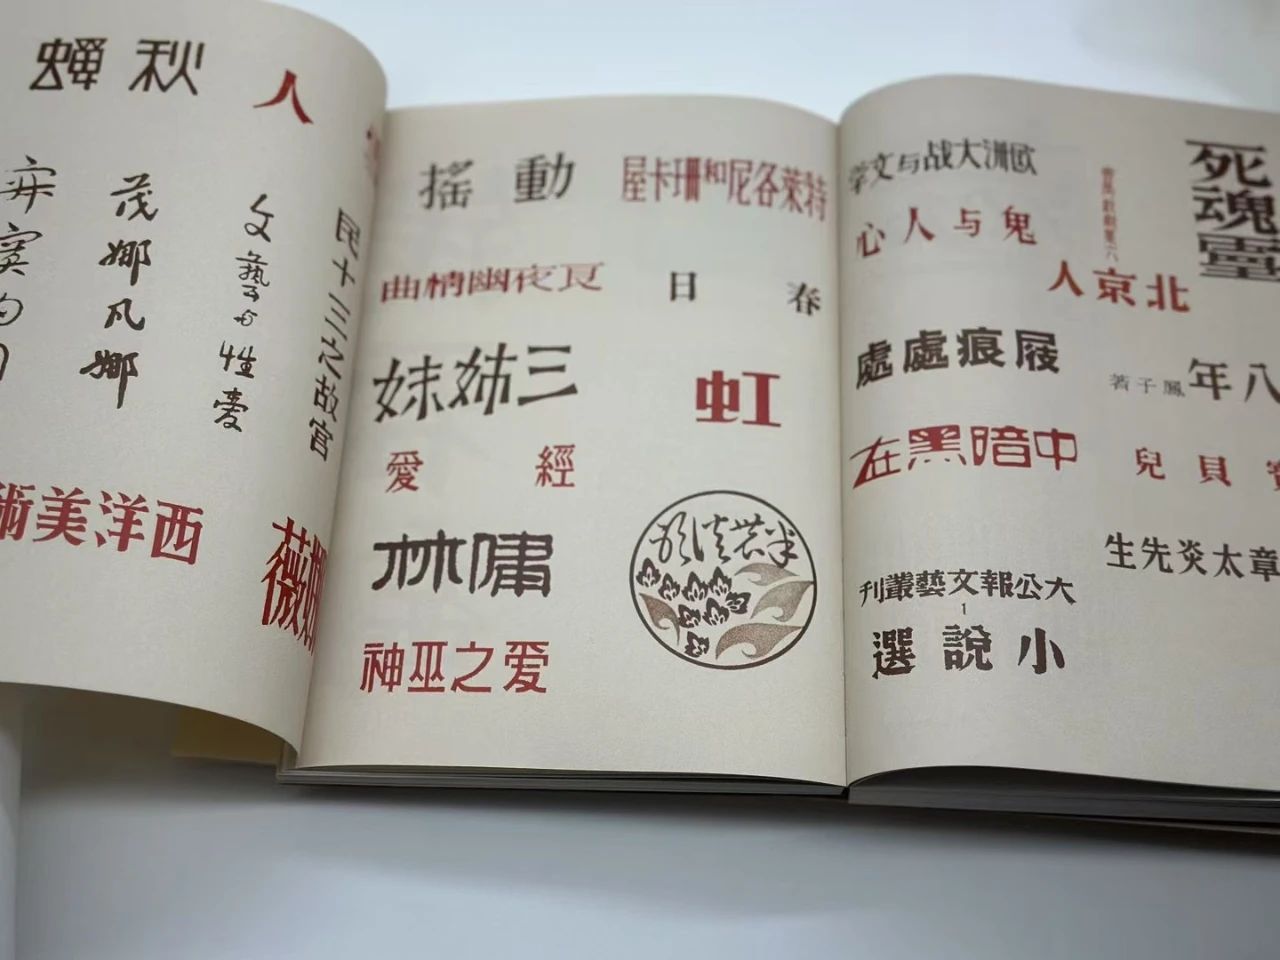 秋蟬
人
茂娜凡娜
文藝与性愛
民十三之故宮
西洋美術
動搖
屋卡珊和尼各萊特
良夜幽情曲
春日
三姊妹
虹
愛經
爱之巫神
半農談影
歐洲大战与文学
鬼与人心
曹禺戲劇集六
北京人
死魂靈
屐痕處處
八年
鳳子著
在黑暗中
貝兒
章太炎先生
大公報文藝叢刊
1
小說選